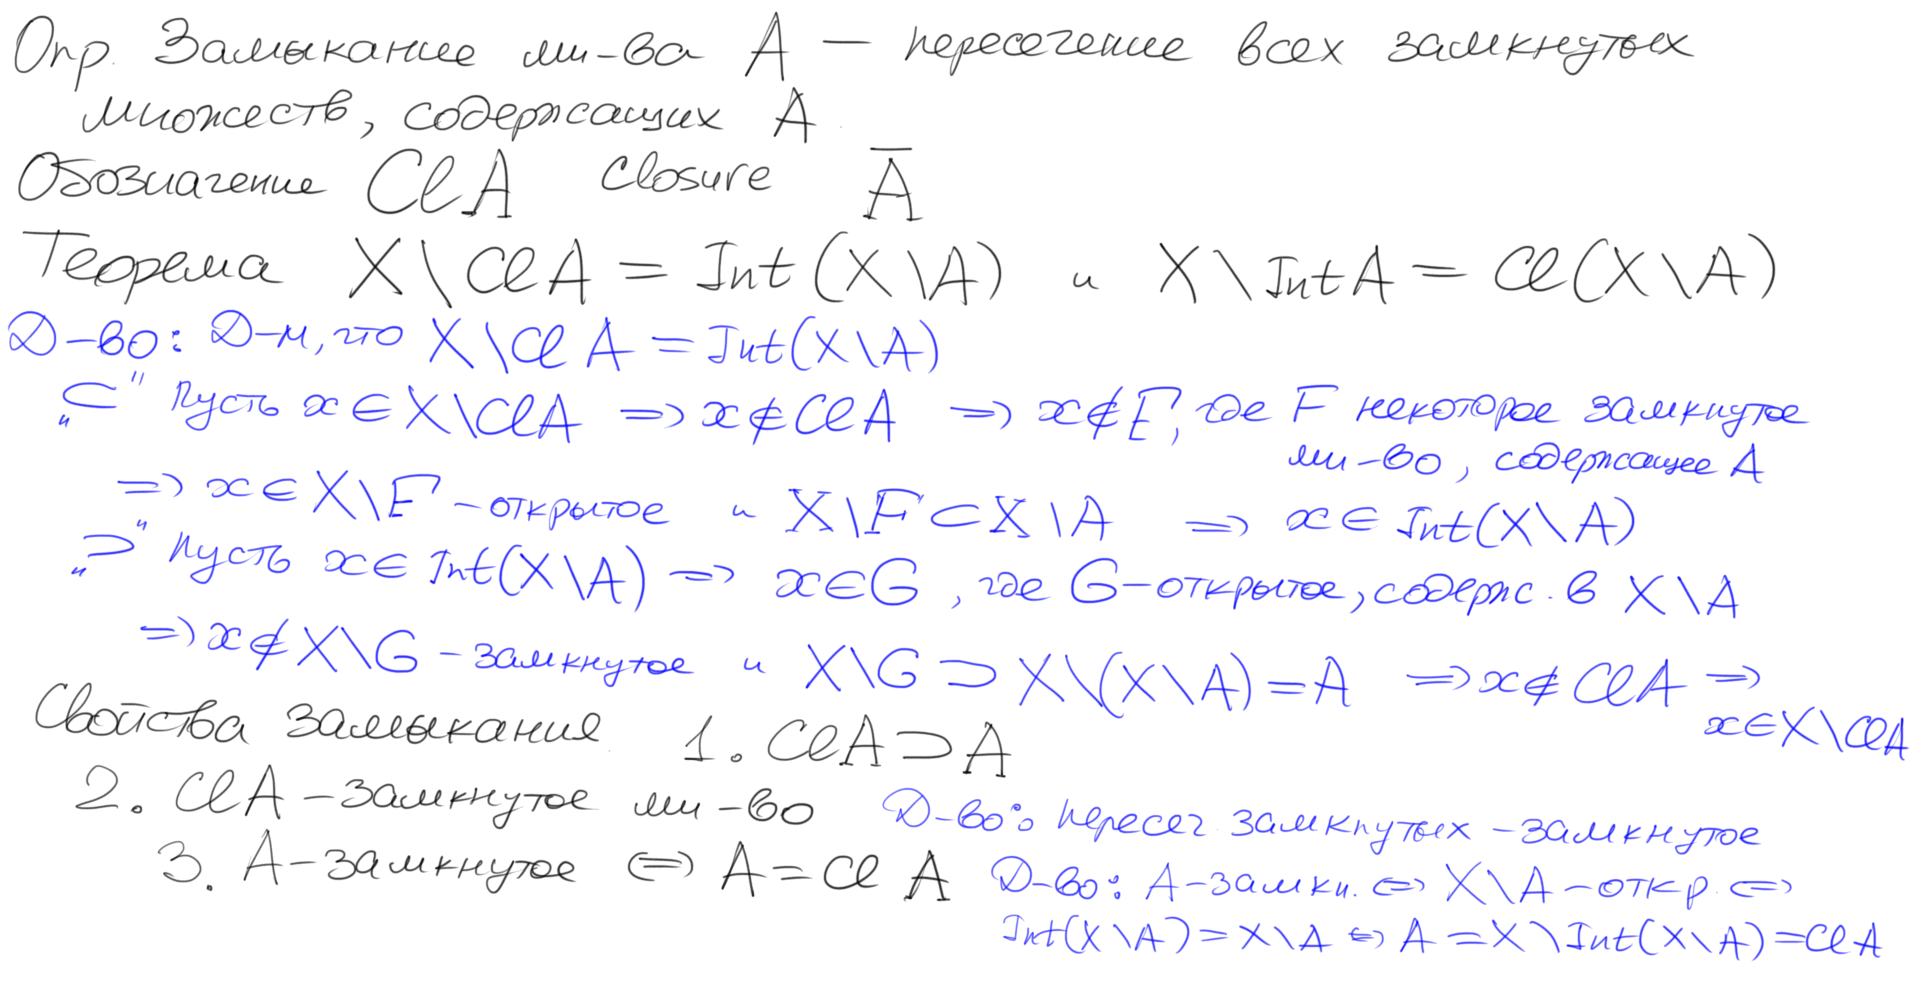 Опр. Замыкание мн-ва A — пересечение всех замкнутых
множеств, содержащих A
Обозначение Cl A Closure A̅
Теорема X \ Cl A = Int (X \ A) и X \ Int A = Cl (X \ A)
Д-во: Д-м, что X \ Cl A = Int (X \ A)
„⊂" Пусть x ∈ X \ Cl A ⇒ x ∉ Cl A ⇒ x ∉ F, где F некоторое замкнутое
мн-во, содержащее A
⇒ x ∈ X \ F – открытое и X \ F ⊂ X \ A ⇒ x ∈ Int (X \ A)
„⊃" Пусть x ∈ Int (X \ A) ⇒ x ∈ G, где G – открытое, содерж. в X \ A
⇒ x ∉ X \ G – замкнутое и X \ G ⊃ X \ (X \ A) = A ⇒ x ∉ Cl A ⇒
x ∈ X \ Cl A
Свойства замыкания 1. Cl A ⊃ A
2. Cl A – замкнутое мн-во Д-во: пересеч. замкнутых – замкнутое
3. A – замкнутое ⇔ A = Cl A Д-во: A – замкн. ⇔ X \ A – откр. ⇔
Int (X \ A) = X \ A ⇔ A = X \ Int (X \ A) = Cl A